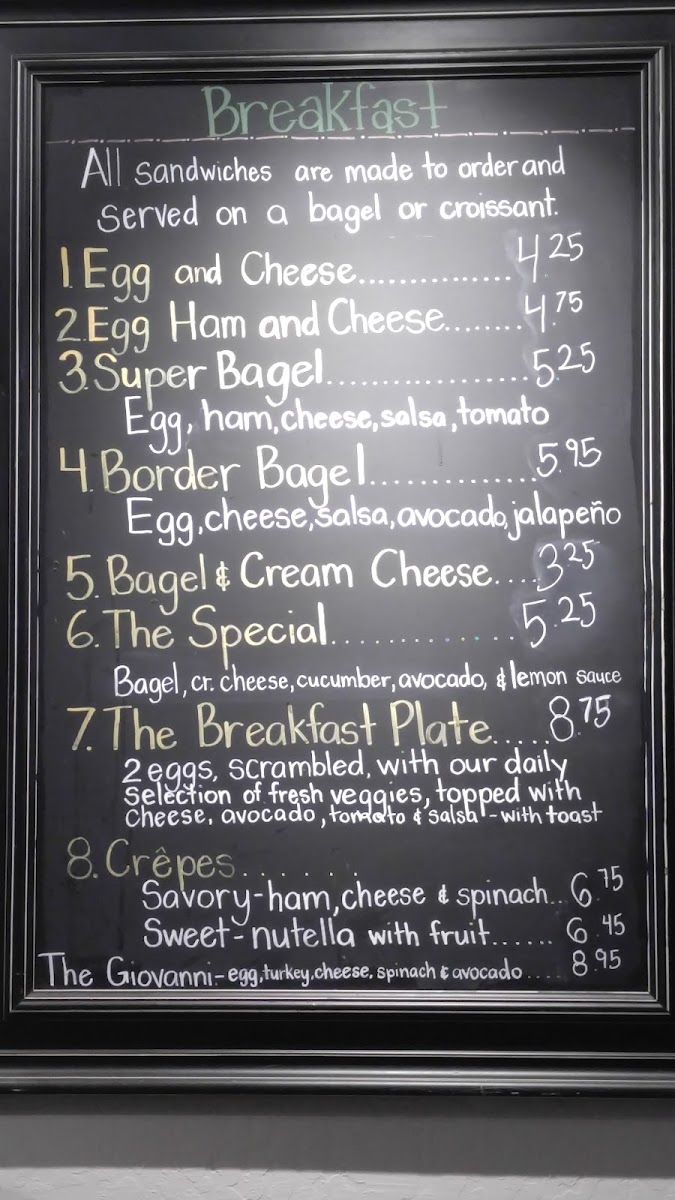 Breakfast
All sandwiches are made to order and
served on a bagel or croissant.
1. Egg and Cheese............... 4.25
2. Egg Ham and Cheese........ 4.75
3. Super Bagel.................. 5.25
Egg, ham, cheese, salsa, tomato
4. Border Bagel............... 5.95
Egg, cheese, salsa, avocado, jalapeño
5. Bagel & Cream Cheese.... 3.25
6. The Special................ 5.25
Bagel, cr. cheese, cucumber, avocado, & lemon sauce
7. The Breakfast Plate..... 8.75
2 eggs, scrambled, with our daily
selection of fresh veggies, topped with
cheese, avocado, tomato & salsa - with toast
8. Crêpes.......
Savory-ham, cheese & spinach... 6.75
Sweet-nutella with fruit...... 6.45
The Giovanni-egg, turkey, cheese, spinach & avocado.... 8.95